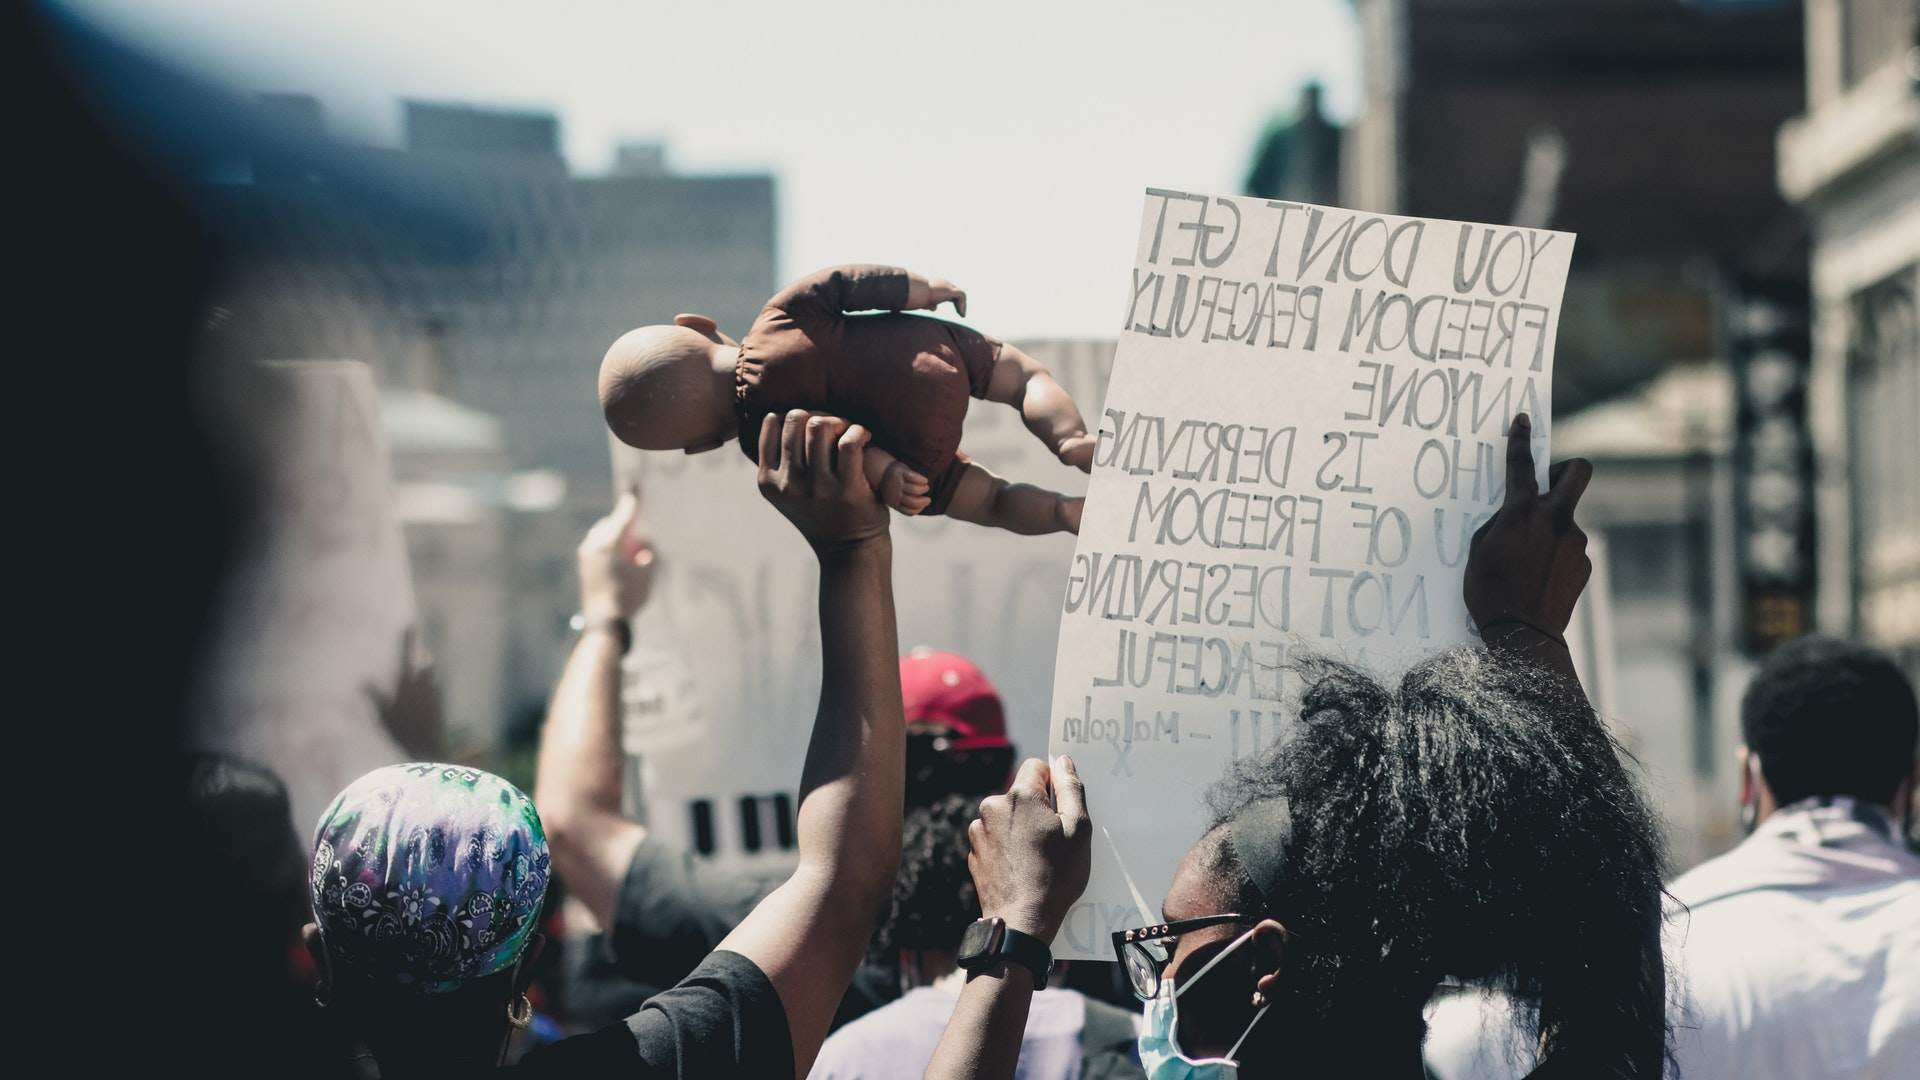 YOU DON'T GET
FREEDOM PEACEFULLY
ANYONE
WHO IS DEPRIVING
YOU OF FREEDOM
NOT DESERVING
PEACEFUL
- Malcolm
X